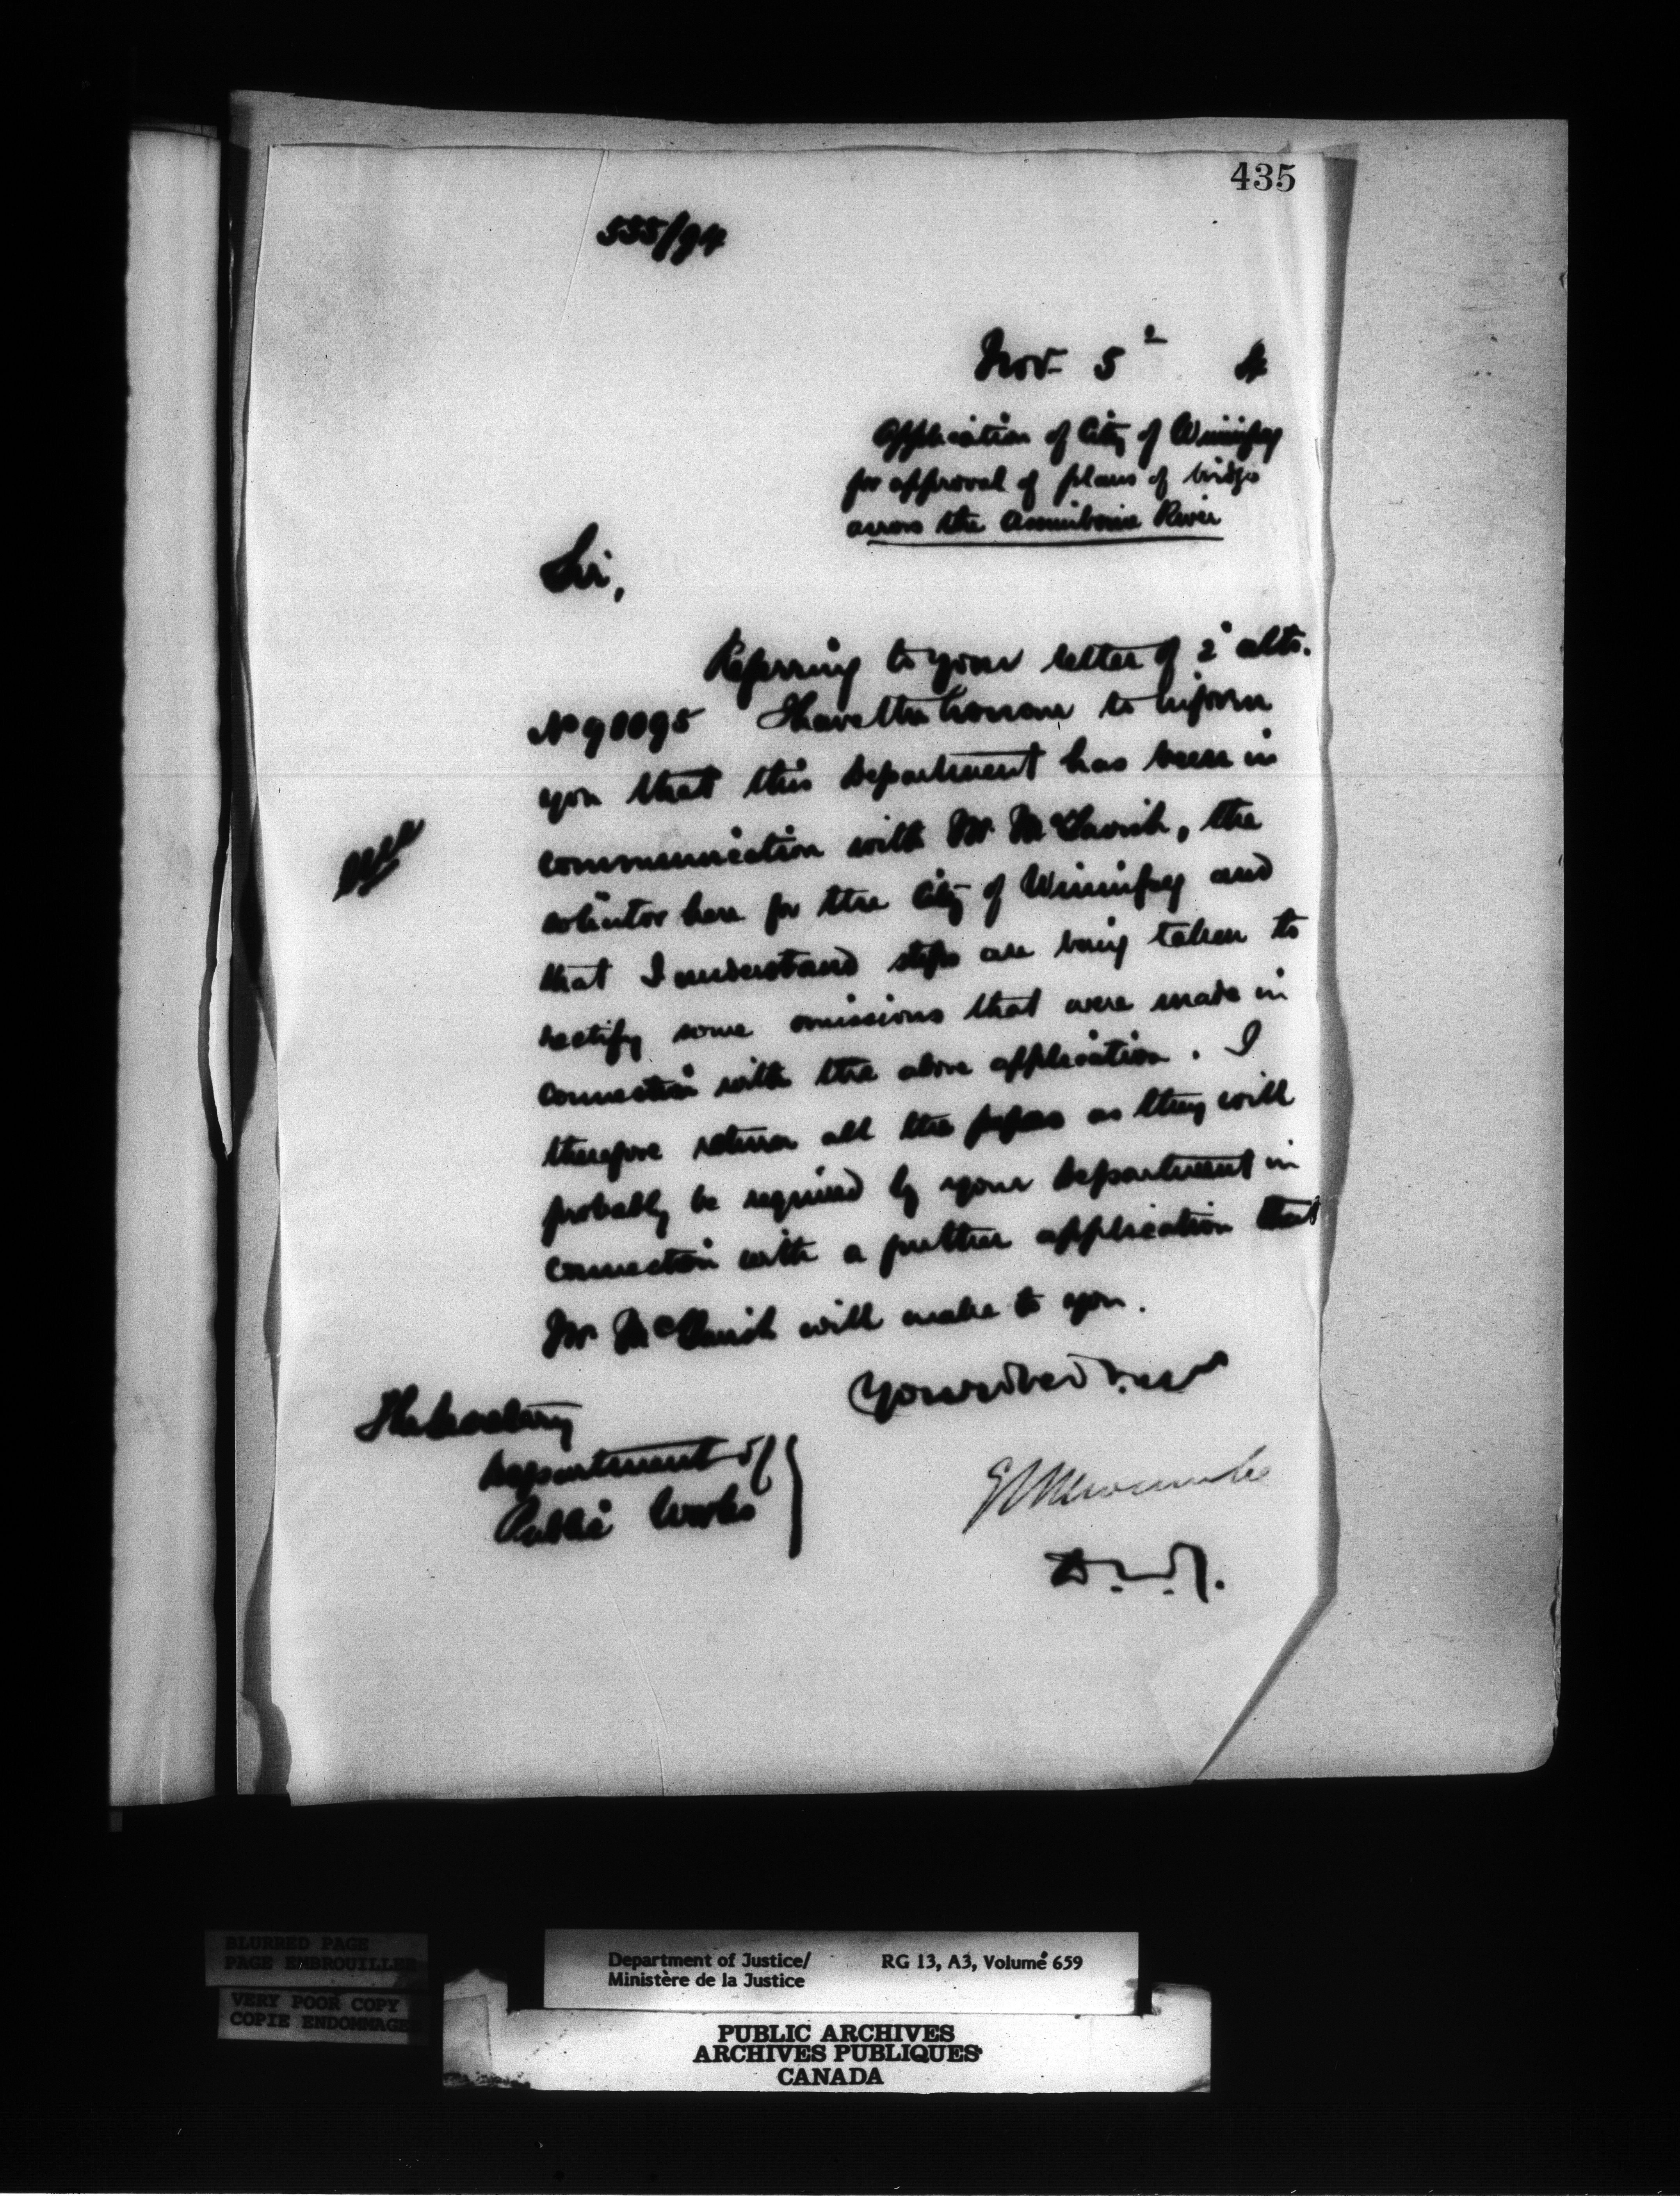 435
535/94
Nov. 5 4
Application of City of Winnipeg
for approval of plans of bridge
across the Assiniboine River
Sir,
Referring to your letter of 2 ulto.
No 90095 I have the honour to inform
you that this Department has been in
communication with Mr. McTavish, the
solicitor here for the City of Winnipeg and
that I understand steps are being taken to
rectify some omissions that were made in
connection with the above application. I
therefore return all the papers as they will
probably be required by your Department in
connection with a further application that
Mr. McTavish will make to you.
The Secretary
Department of
Public Works
E L Newcombe
BLURRED PAGE
PAGE EMBROUILLEE
VERY POOR COPY
COPIE ENDOMMAGEE
Department of Justice/ RG 13, A3, Volume 659
Ministère de la Justice
PUBLIC ARCHIVES
ARCHIVES PUBLIQUES
CANADA